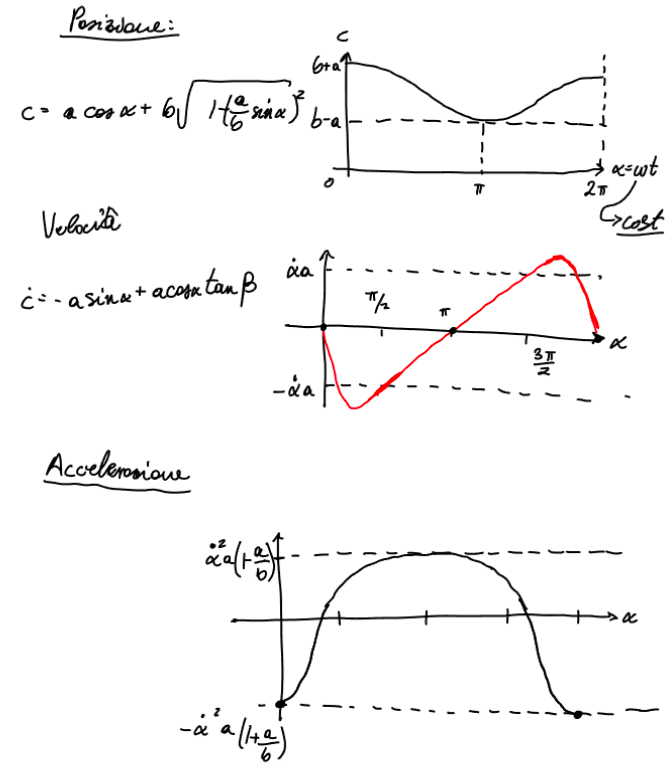 Posizione:
c
b+a
c = a cos α + b√(1-(a/b sin α)²)
b-a
0
π
2π
α=ωt
→ cost
Velocità
α̇a
ċ = - a sin α + a cos α tan β
π/2
π
3π/2
α
-α̇a
Accelerazione
α̇²a(1-a/b)
α
-α̇²a(1+a/b)